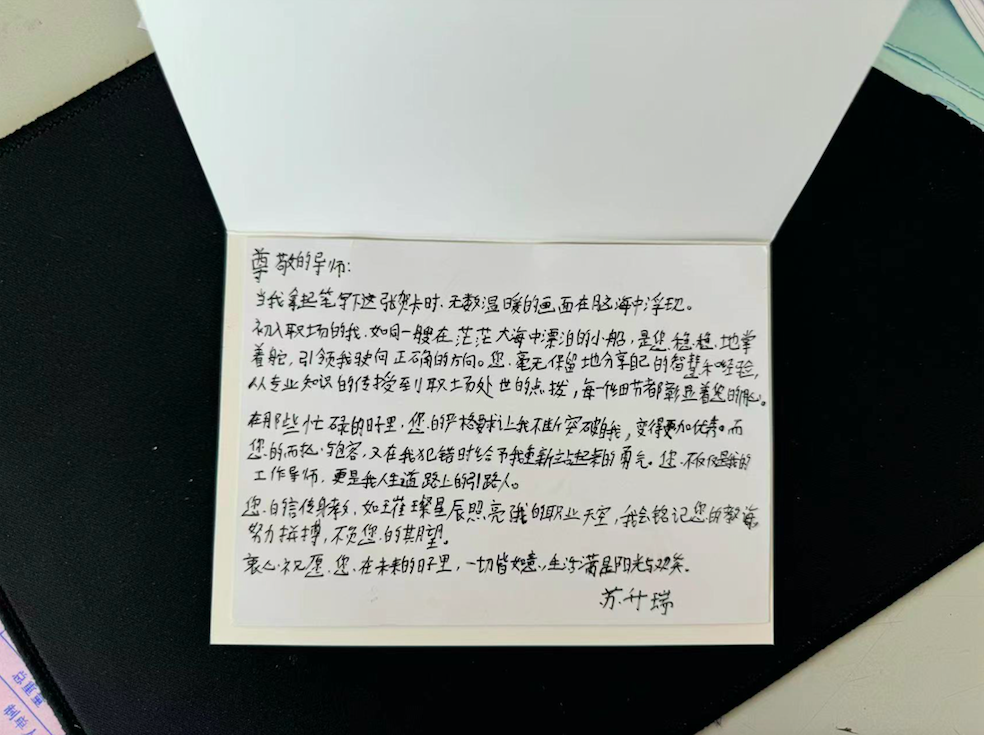 尊敬的导师:
当我拿起笔写下这张贺卡时,无数温暖的画面在脑海中浮现。
初入职场的我,如同一艘在茫茫大海中漂泊的小船,是您稳稳地掌
着舵,引领我驶向正确的方向。您毫无保留地分享自己的智慧和经验,
从专业知识的传授到职场处世的点拨,每一个细节都彰显着您的用心。
在那些忙碌的日子里,您的严格要求让我不断突破自我,变得更加优秀。而
您的耐心与包容,又在我犯错时给予我重新站起来的勇气。您不仅是我的
工作导师,更是我人生道路上的引路人。
您的言传身教,如璀璨星辰照亮我的职业天空,我会铭记您的教诲,
努力拼搏,不负您的期望。
衷心祝愿您在未来的日子里,一切皆如意,生活满是阳光与欢笑。
苏升瑞
重量